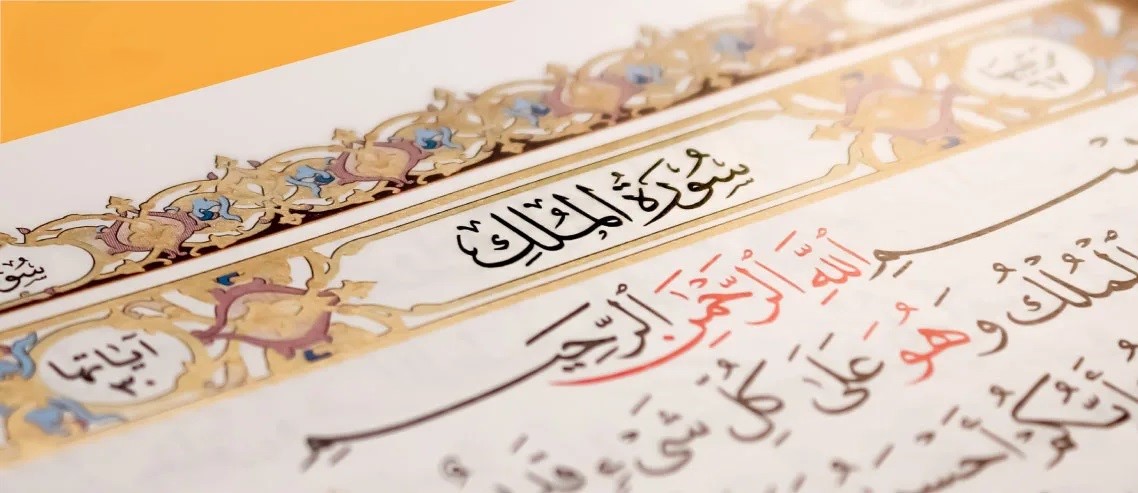 سُورَةُ المُلكِ
آيَاتها ٣٠
بِسْمِ اللَّهِ الرَّحْمَٰنِ الرَّحِيمِ
الْمُلْكُ وَهُوَ عَلَىٰ كُلِّ شَيْءٍ قَدِيرٌ
أَيُّكُمْ أَحْسَنُ